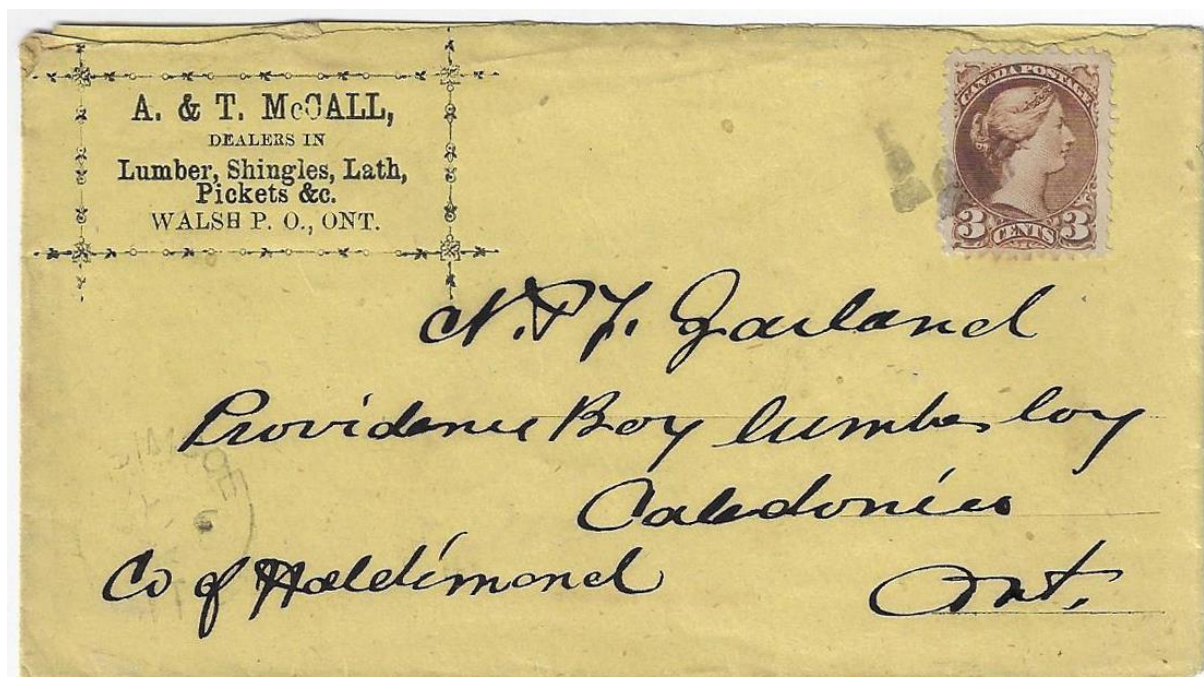 A. & T. McCALL,
DEALERS IN
Lumber, Shingles, Lath,
Pickets &c.
WALSH P. O., ONT.
CANADA POSTAGE
3 CENTS 3
N. P. J. Garland
Providence Boy lumber Coy
Caledonia
Co of Haldimond
Ont.